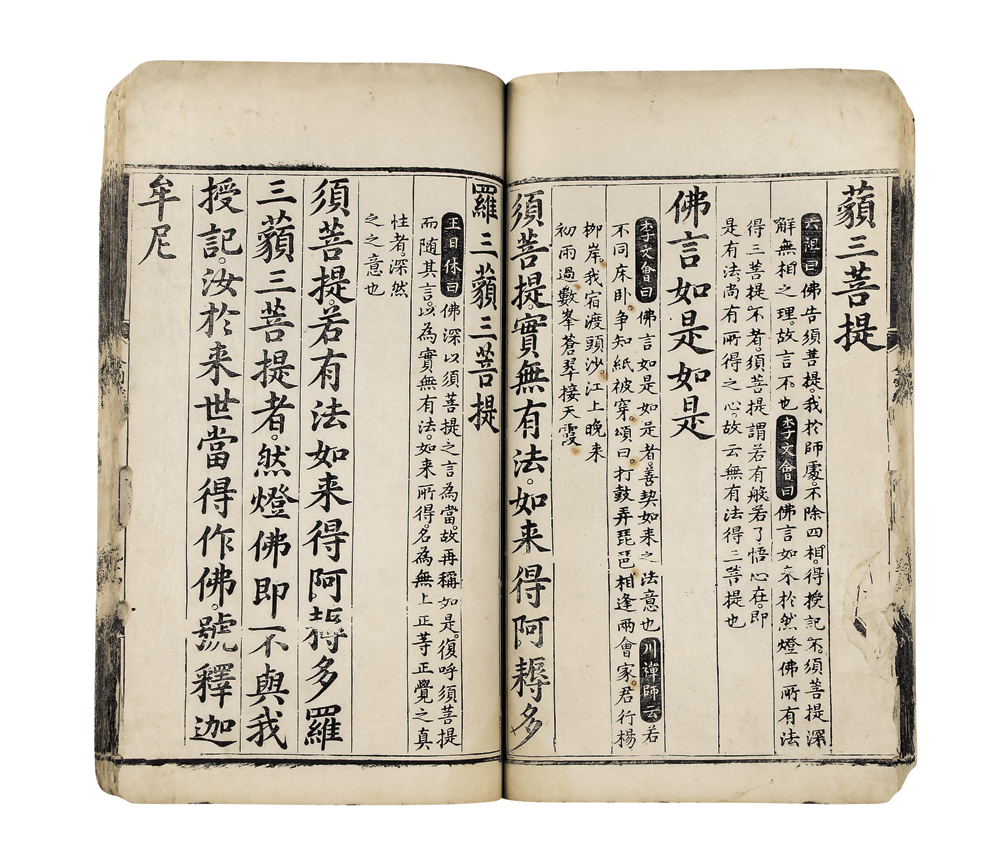 藐三菩提
六祖曰佛告須菩提。我於師處。不除四相。得授記不。須菩提深
解無相之理。故言不也李文會曰佛言如来於然燈佛所。有法
得三菩提。不者。須菩提謂若有般若了悟心在。即
是有法。尚有所得之心。故云無有法得三菩提也
佛言如是如是
李文會曰佛言如是如是者。善契如来之法意也川禪師云若
不同床卧。争知紙被穿。頌曰。打鼓弄琵琶。相逢两會家。君行楊
柳岸。我宿渡頭沙。江上晚来
初雨過。數峯蒼翠接天霞
須菩提。實無有法。如来得阿耨多
羅三藐三菩提
王日休曰佛深以須菩提之言為當。故再稱如是。復呼須菩提
而随其言。以為實無有法。如来所得。名為無上正等正覺之真
性者。深然
之之意也
須菩提。若有法如来得阿耨多羅
三藐三菩提者。然燈佛即不與我
授記。汝於来世當得作佛。號釋迦
牟尼